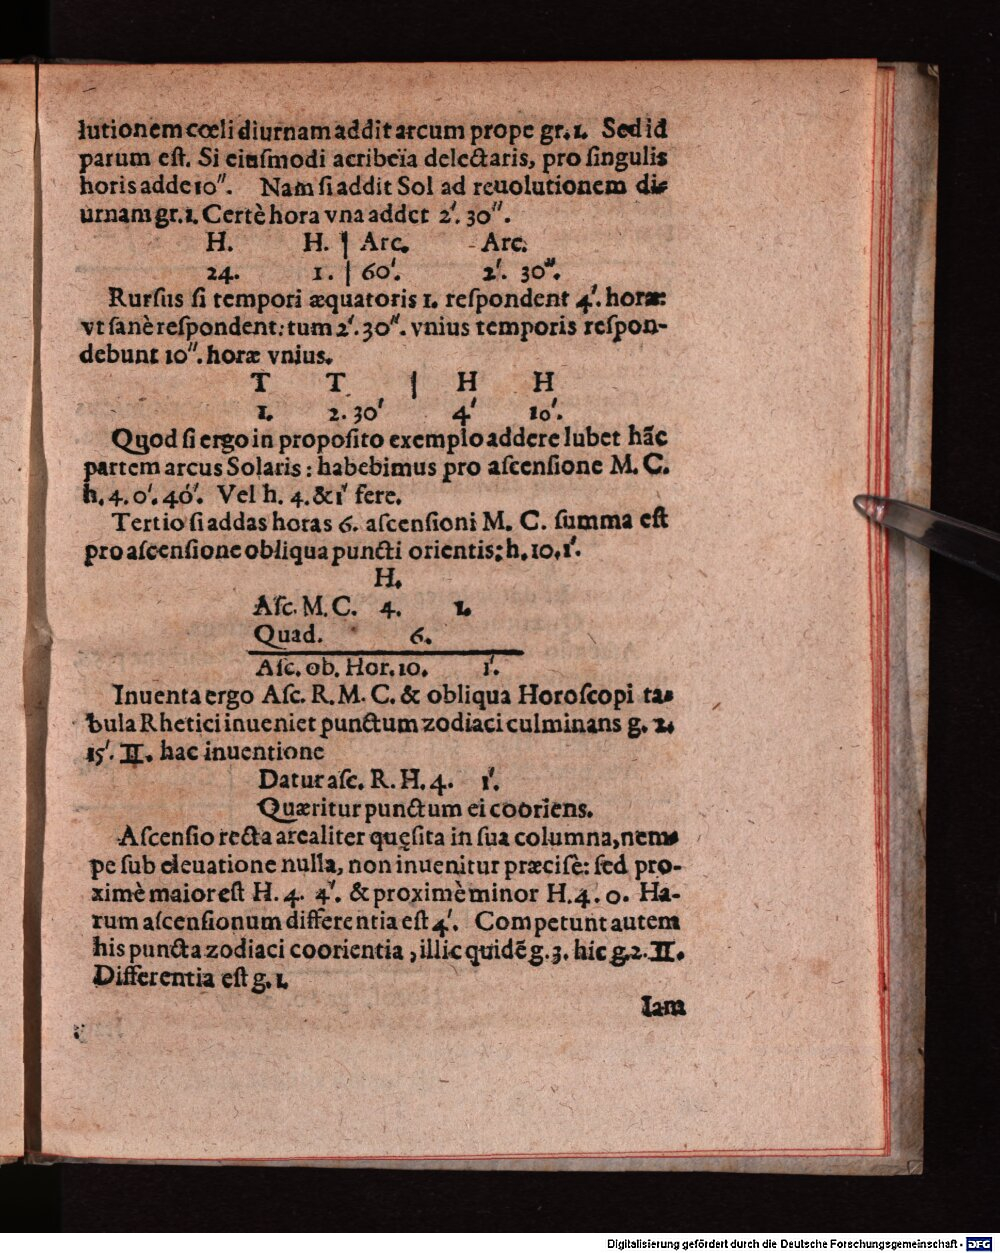 lutionem cœli diurnam addit arcum prope gr. 1. Sed id
parum eſt. Si eiuſmodi acribeïa delectaris, pro ſingulis
horis adde 10″. Nam ſi addit Sol ad reuolutionem di-
urnam gr. 1. Certè hora vna addet 2′. 30″.
H. H. | Arc. Arc.
24. 1. | 60′. 2′. 30″.
Rurſus ſi tempori æquatoris 1. reſpondent 4′. horæ:
vt ſanè reſpondent: tum 2′. 30″. vnius temporis reſpon-
debunt 10″. horæ vnius.
T T | H H
1. 2. 30′ 4′ 10′.
Quod ſi ergo in propoſito exemplo addere lubet hãc
partem arcus Solaris: habebimus pro aſcenſione M. C.
h. 4. 0′. 40′. Vel h. 4. & 1′ fere.
Tertio ſi addas horas 6. aſcenſioni M. C. ſumma eſt
pro aſcenſione obliqua puncti orientis: h. 10. 1′.
H.
Aſc. M. C. 4. 1.
Quad. 6.
Aſc. ob. Hor. 10. 1′.
Inuenta ergo Aſc. R. M. C. & obliqua Horoſcopi ta-
bula Rhetici inueniet punctum zodiaci culminans g. 2.
15′. ♊. hac inuentione
Datur aſc. R. H. 4. 1′.
Quæritur punctum ei cooriens.
Aſcenſio recta arealiter quęſita in ſua columna, nem-
pe ſub eleuatione nulla, non inuenitur præciſè: ſed pro-
ximè maior eſt H. 4. 4′. & proximè minor H. 4. 0. Ha-
rum aſcenſionum differentia eſt 4′. Competunt autem
his puncta zodiaci coorientia, illic quidẽ g. 3. hic g. 2. ♊.
Differentia eſt g. 1.
Iam
Digitalisierung gefördert durch die Deutsche Forschungsgemeinschaft - DFG